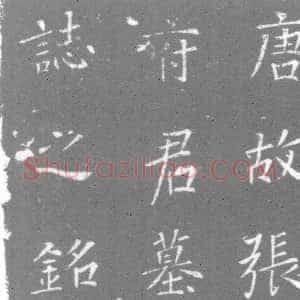 唐故張
府君墓
誌之銘
Shufaziliao.com